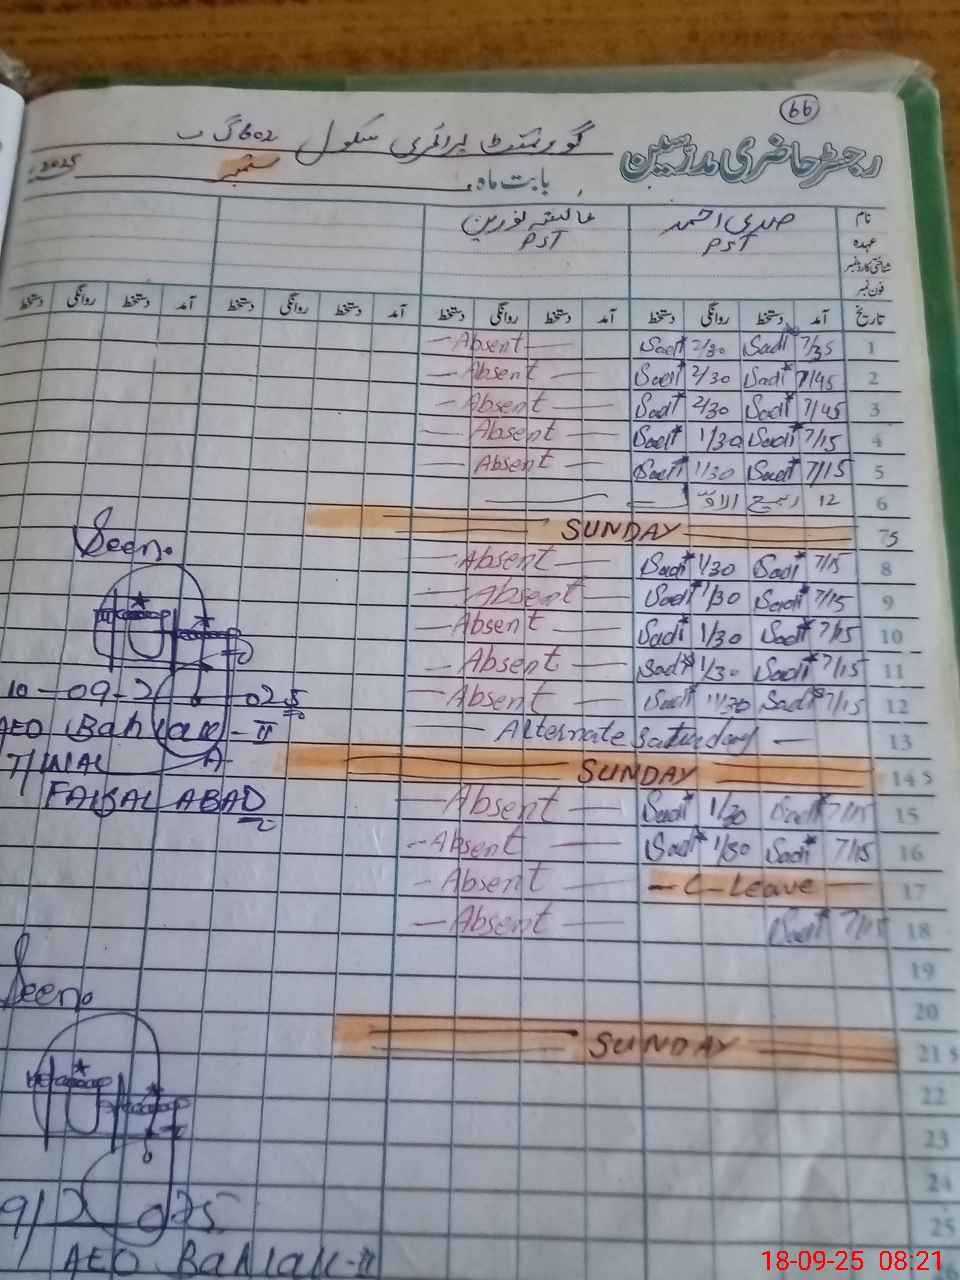 66
رجسٹر حاضری مدرسین گورنمنٹ پرائمری سکول 602 گ ب
بابت ماہ ستمبر 2025
نام صدی احمد
عہدہ PST PST
شناختی کارڈ نمبر
فون نمبر
تاریخ آمد دستخط روانگی دستخط آمد دستخط روانگی دستخط آمد دستخط روانگی دستخط آمد دستخط روانگی دستخط
1 7/35 Sadi 2/30 Sadi — Absent —
2 7/45 Sadi 2/30 Sadi — Absent —
3 7/45 Sadi 2/30 Sadi — Absent —
4 7/15 Sadi 1/30 Sadi — Absent —
5 7/15 Sadi 1/30 Sadi Absent —
6 12 ربیع الاول
7 S SUNDAY
8 7/15 Sadi 1/30 Sadi — Absent —
9 7/15 Sadi 1/30 Sadi — Absent —
10 7/15 Sadi 1/30 Sadi — Absent —
11 7/15 Sadi 1/30 Sadi — Absent —
12 7/15 Sadi 1/30 Sadi — Absent —
13 — Alternate Saturday —
14 S SUNDAY
15 7/15 Sadi 1/30 Sadi — Absent —
16 7/15 Sadi 1/30 Sadi — Absent —
17 — C-Leave — — Absent —
18 7/15 Sadi — Absent —
19
20
21 S SUNDAY
22
23
24
25
Seen.
10-09-2025
AEO Bahlak-II
FAISALABAD
Seen.
AEO Bahlak-II
18-09-25 08:21